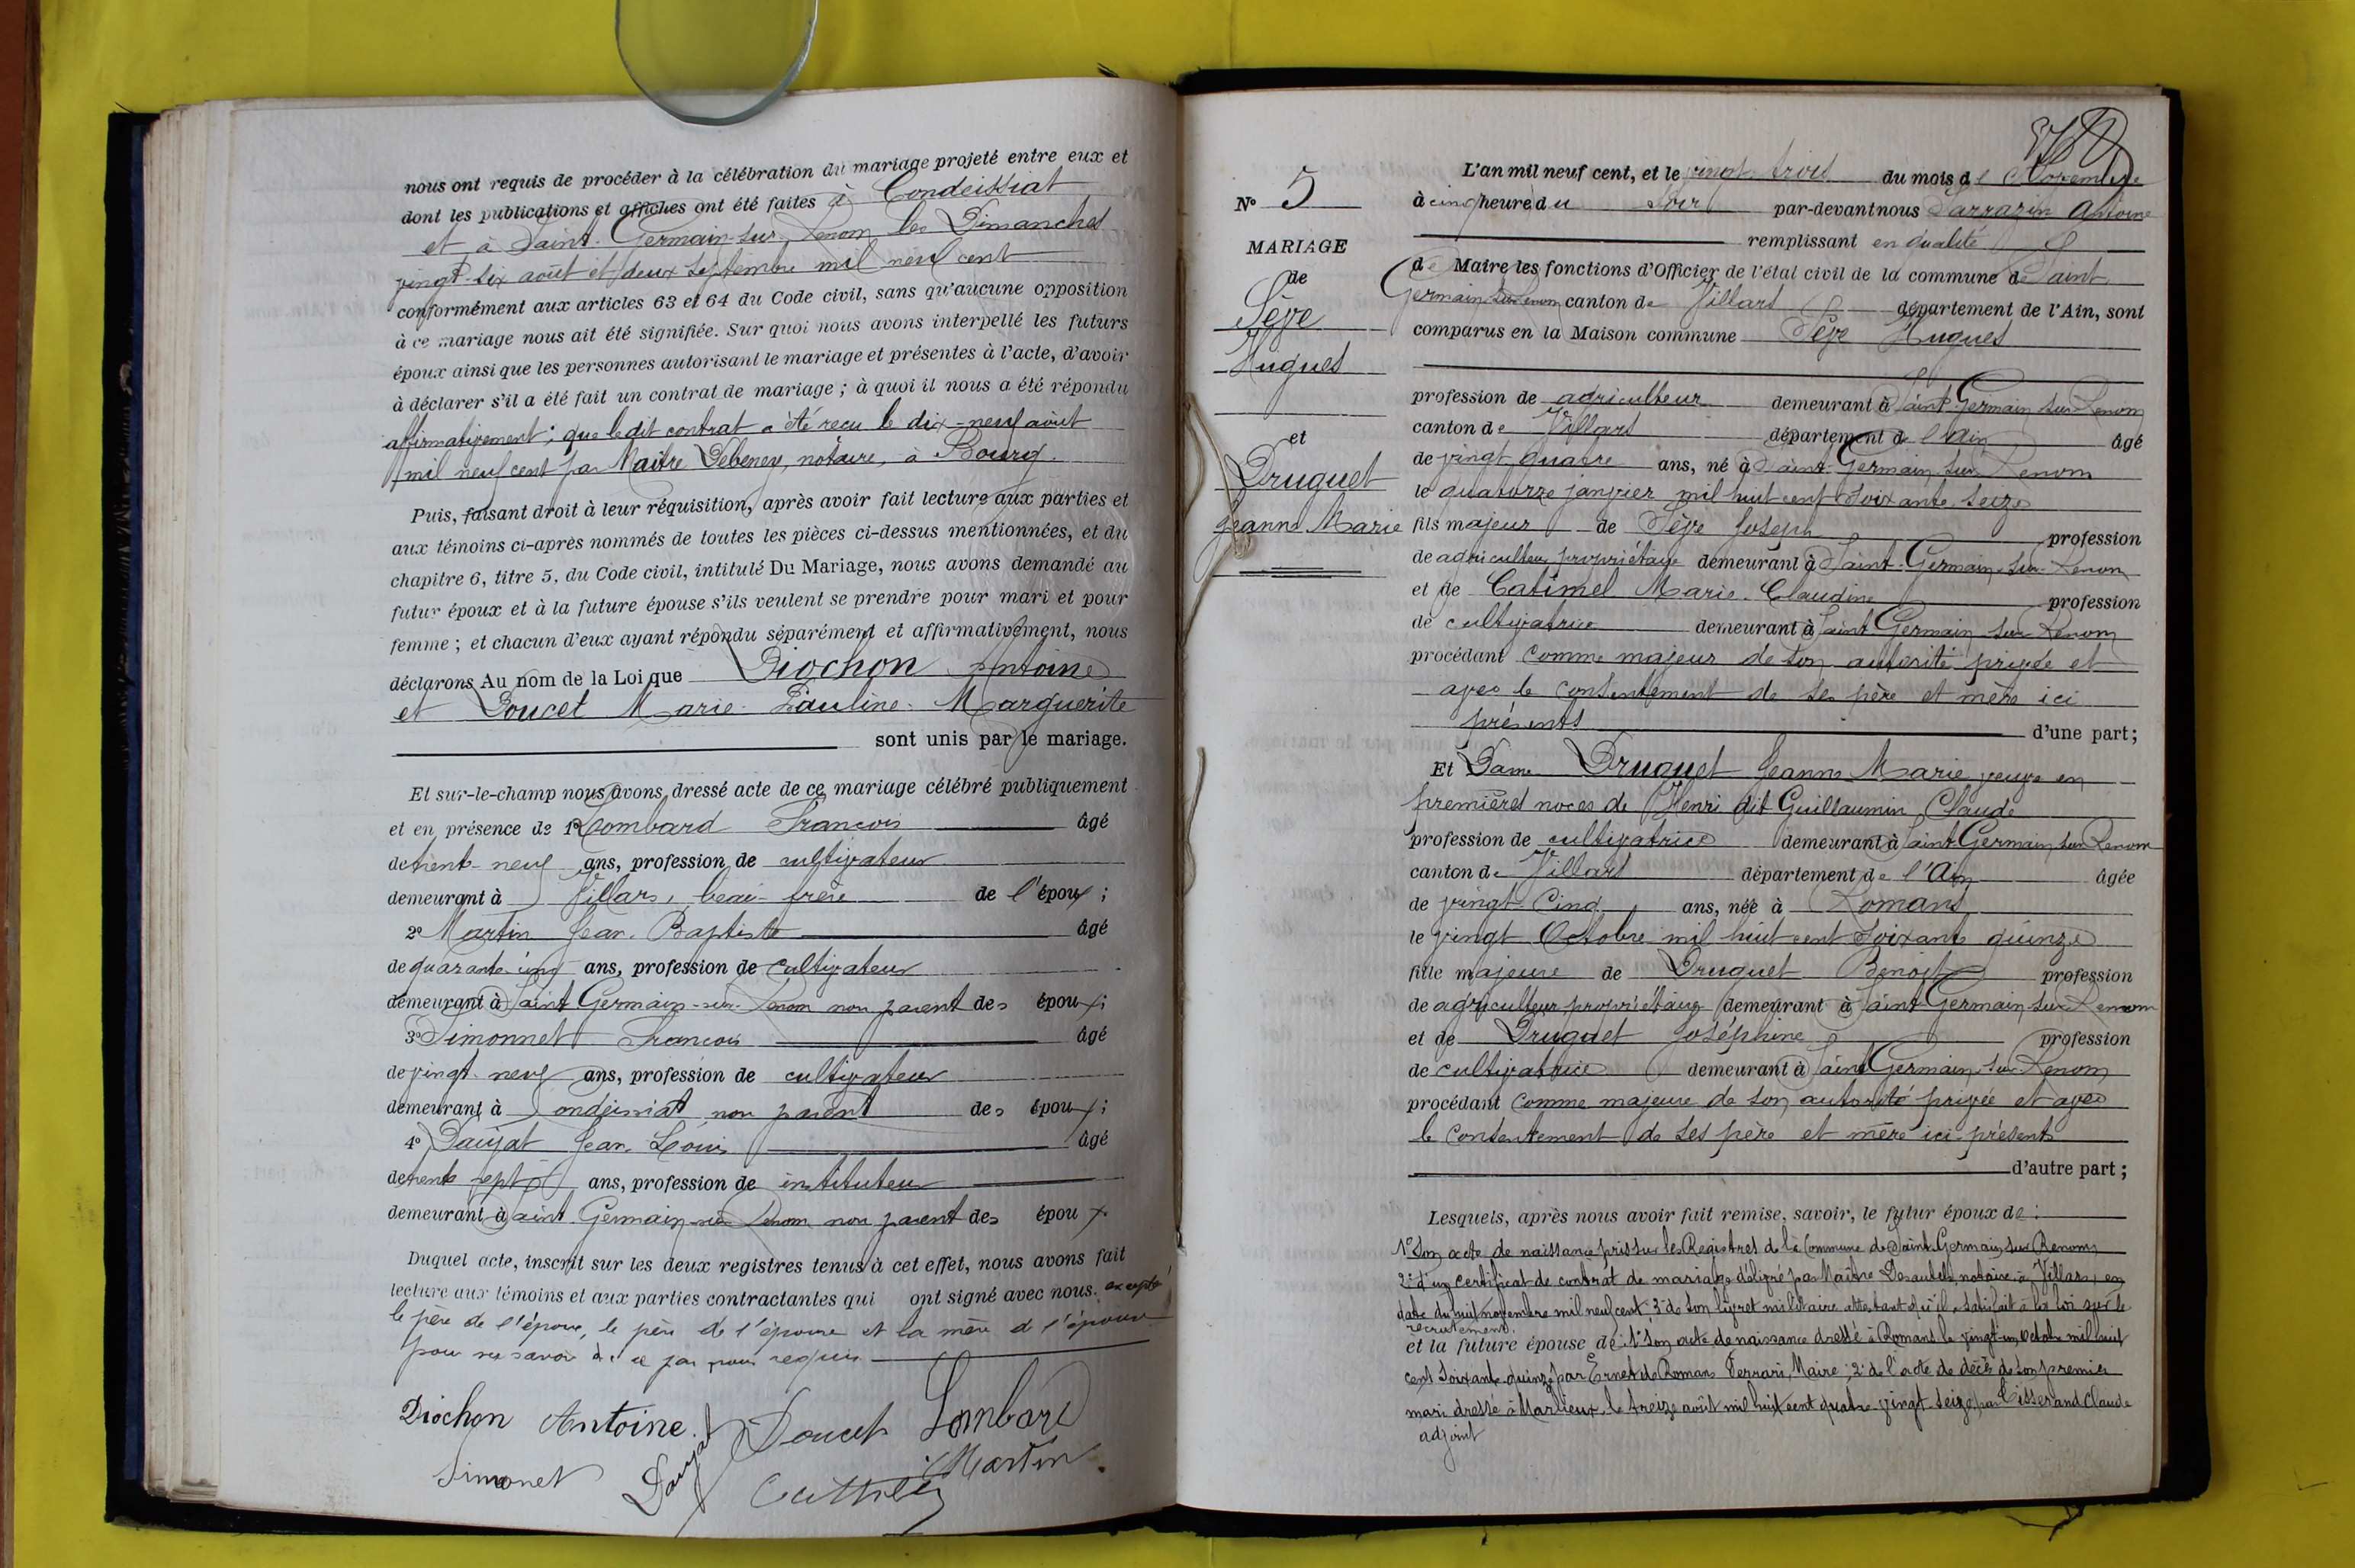 nous ont requis de procéder à la célébration du mariage projeté entre eux et
dont les publications et affiches ont été faites à Condeissiat
et à Saint-Germain-sur-Renom les Dimanches
vingt-six août et deux septembre mil neuf cent
conformément aux articles 63 et 64 du Code civil, sans qu'aucune opposition
à ce mariage nous ait été signifiée. Sur quoi nous avons interpellé les futurs
époux ainsi que les personnes autorisant le mariage et présentes à l'acte, d'avoir
à déclarer s'il a été fait un contrat de mariage ; à quoi il nous a été répondu
affirmativement ; que ledit contrat a été reçu le dix-neuf août
mil neuf cent par Maître Debeney, notaire, à Bourg.
Puis, faisant droit à leur réquisition, après avoir fait lecture aux parties et
aux témoins ci-après nommés de toutes les pièces ci-dessus mentionnées, et du
chapitre 6, titre 5, du Code civil, intitulé Du Mariage, nous avons demandé au
futur époux et à la future épouse s'ils veulent se prendre pour mari et pour
femme ; et chacun d'eux ayant répondu séparément et affirmativement, nous
déclarons Au nom de la Loi que Diochon Antoine
et Doucet Marie-Pauline-Marguerite
sont unis par le mariage.
Et sur-le-champ nous avons dressé acte de ce mariage célébré publiquement
et en présence de 1° Lombard François âgé
de trente-neuf ans, profession de cultivateur
demeurant à Villars, beau-frère de l'époux ;
2° Martin Jean-Baptiste âgé
de quarante-cinq ans, profession de cultivateur
demeurant à Saint Germain-sur-Renom non parent des époux ;
3° Simonnet François âgé
de vingt-neuf ans, profession de cultivateur
demeurant à Condeissiat non parent des époux ;
4° Daujat Jean-Louis âgé
de trente-sept ans, profession de instituteur
demeurant à Saint-Germain-sur-Renom non parent des époux
Duquel acte, inscrit sur les deux registres tenus à cet effet, nous avons fait
lecture aux témoins et aux parties contractantes qui ont signé avec nous. excepté
le père de l'époux, le père de l'épouse et la mère de l'épouse
pour ne savoir de ce par nous requis
Diochon Antoine. Doucet Lombard
Simonet Daujat Martin
N° 5
MARIAGE
de
Sève
Hugues
et
Druguet
Jeanne Marie
L'an mil neuf cent, et le vingt-trois du mois de Novembre
à cinq heure du soir par-devant nous Sarrazin Antoine
remplissant en qualité
de Maire les fonctions d'Officier de l'état civil de la commune de Saint-
Germain-sur-Renom canton de Villars département de l'Ain, sont
comparus en la Maison commune Sève Hugues
profession de agriculteur demeurant à Saint-Germain sur Renom
canton de Villars département de l'Ain âgé
de vingt-quatre ans, né à Saint-Germain sur Renom
le quatorze janvier mil huit cent soixante-seize
fils majeur de Sève Joseph profession
de agriculteur propriétaire demeurant à Saint-Germain-sur-Renom
et de Catimel Marie-Claudine profession
de cultivatrice demeurant à Saint-Germain sur Renom
procédant comme majeur de son autorité privée et
avec le consentement de ses père et mère ici
présents d'une part ;
Et Dame Druguet Jeanne Marie veuve en
premières noces de Henri dit Guillaumin Claude
profession de cultivatrice demeurant à Saint Germain sur Renom
canton de Villars département de l'Ain âgée
de vingt-Cinq ans, née à Romans
le vingt Octobre mil huit cent soixante quinze
fille majeure de Druguet Benoît profession
de agriculteur propriétaire demeurant à Saint-Germain-sur-Renom
et de Druguet Joséphine profession
de cultivatrice demeurant à Saint Germain-sur-Renom
procédant comme majeure de son autorité privée et avec
le consentement de ses père et mère ici-présents
d'autre part ;
Lesquels, après nous avoir fait remise, savoir, le futur époux de :
1° Son acte de naissance pris sur les Registres de la Commune de Saint-Germain sur Renom
2° d'un certificat de contrat de mariage délivré par Maître Desautels, notaire à Villars, en
date du huit novembre mil neuf cent 3° de son livret militaire attestant qu'il a satisfait à la loi sur le
recrutement.
et la future épouse de : 1° Son acte de naissance dressé à Romans le vingt-un Octobre mil huit
cent soixante-quinze par Ernest de Romans Ferrari, Maire ; 2° de l'acte de décès de son premier
mari dressé à Marlieux le treize août mil huit cent quatre-vingt-seize par Tisserand Claude
adjoint